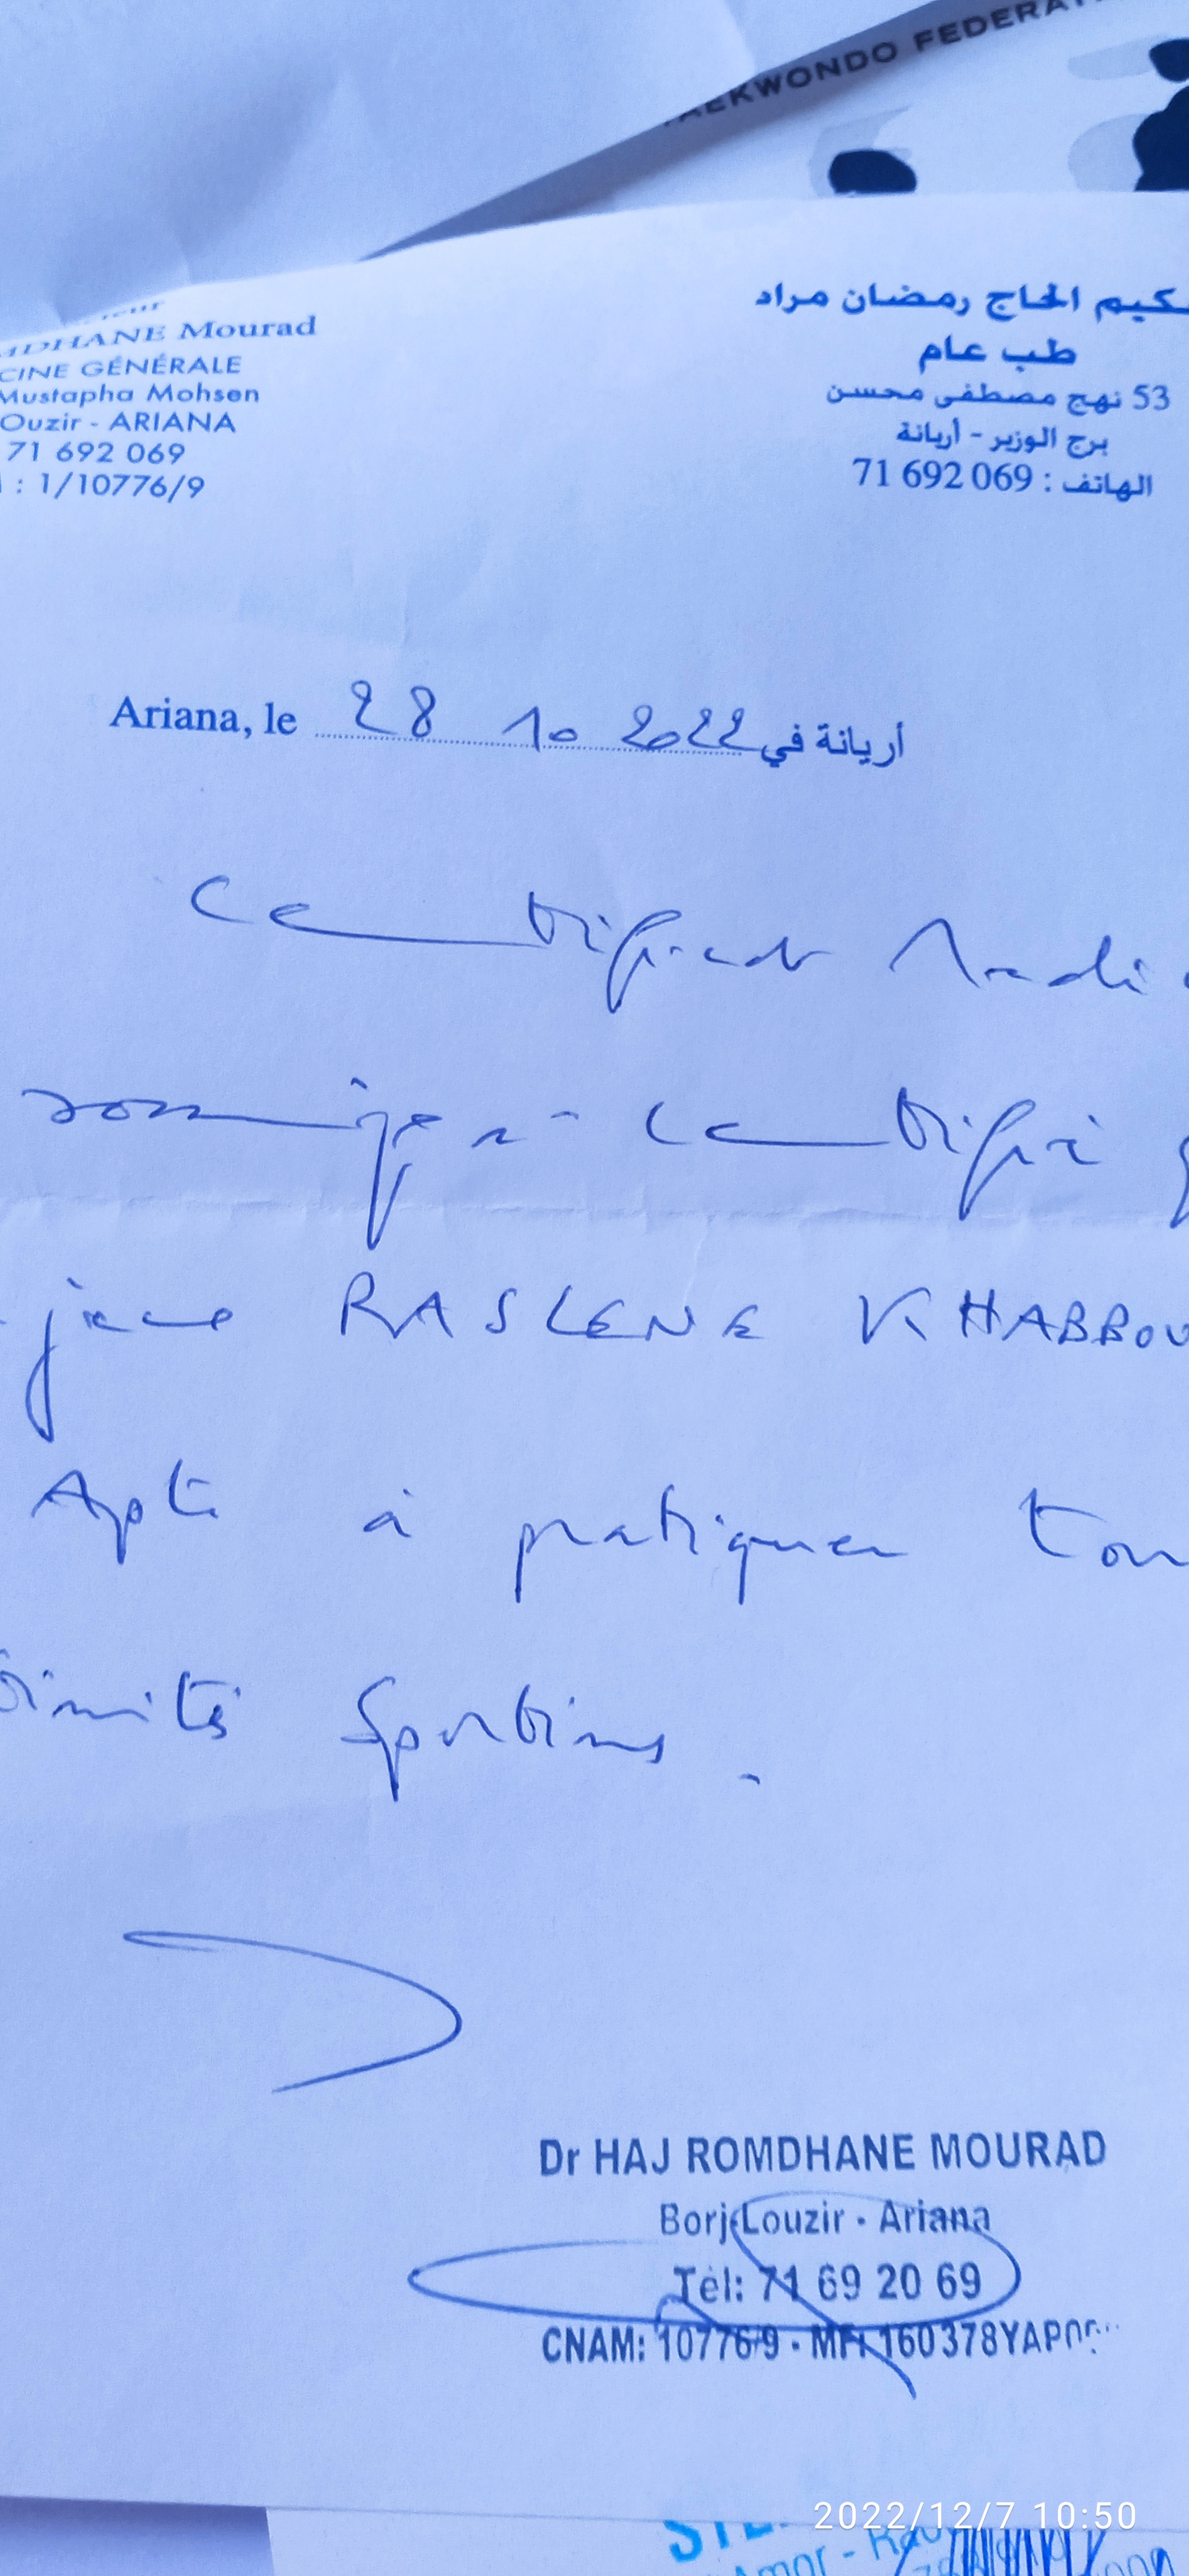 TAEKWONDO FEDERAT
MDHANE Mourad
CINE GÉNÉRALE
Mustapha Mohsen
Ouzir - ARIANA
71 692 069
: 1/10776/9
كيم الحاج رمضان مراد
طب عام
53 نهج مصطفى محسن
برج الوزير - أريانة
الهاتف : 71 692 069
Ariana, le 28 10 2022 أريانة في
Certificat Médi
soussigné certifie
jeune RASLENE KHABBOU
Apte à pratiquer tou
tivités Sportives.
Dr HAJ ROMDHANE MOURAD
Borj Louzir - Ariana
Tél: 71 69 20 69
CNAM: 10776/9 - MF: 160378YAP00
2022/12/7 10:50